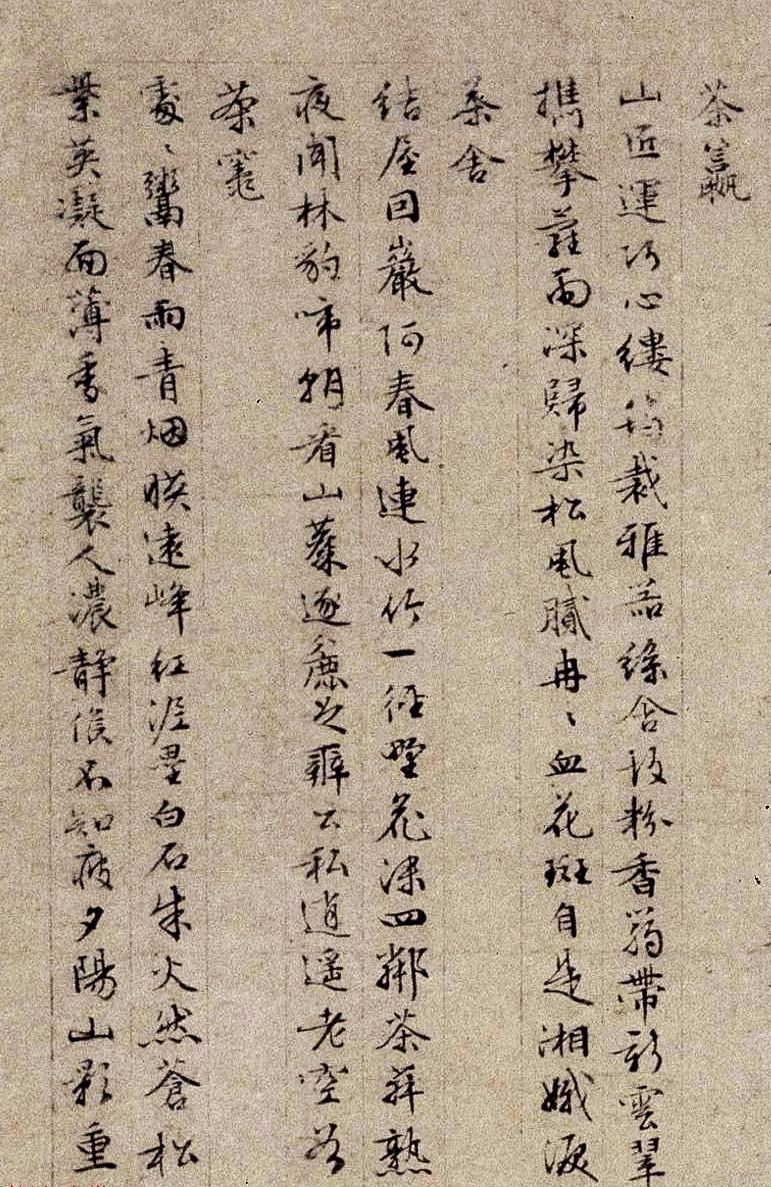 茶籯
山匠運巧心縷筠裁雅器綠含故粉香篛帶新雲翠
攜攀蘿雨深歸染松風膩冉〻血花斑自是湘娥淚
茶舍
結屋因巖阿春風連水竹一徑野花深四鄰茶荈熟
夜聞林豹啼朝看山麋逐麤足辦公私逍遙老空谷
茶竈
處〻鬻春雨青烟映遠峰紅泥壘白石朱火然蒼松
紫英凝面薄香氣襲人濃靜候不知疲夕陽山影重